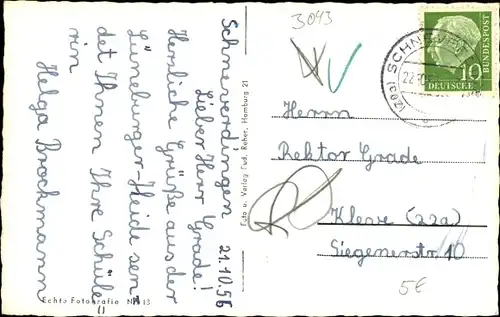 Schneverdingen 21.10.56
Lieber Herr Grade!
Herzliche Grüße aus der
Lüneburger-Heide sen-
det Ihnen Ihre Schüle
rin
Helga Brockmann
Echte Fotografie Nr. 13
Foto u. Verlag Rud. Reher, Hamburg 21
3093
SCHNEVERDINGEN
(20a)
10
DEUTSCHE
BUNDESPOST
Herrn
Rektor Grade
Kleve (22a)
Siegenerstr. 10
5€